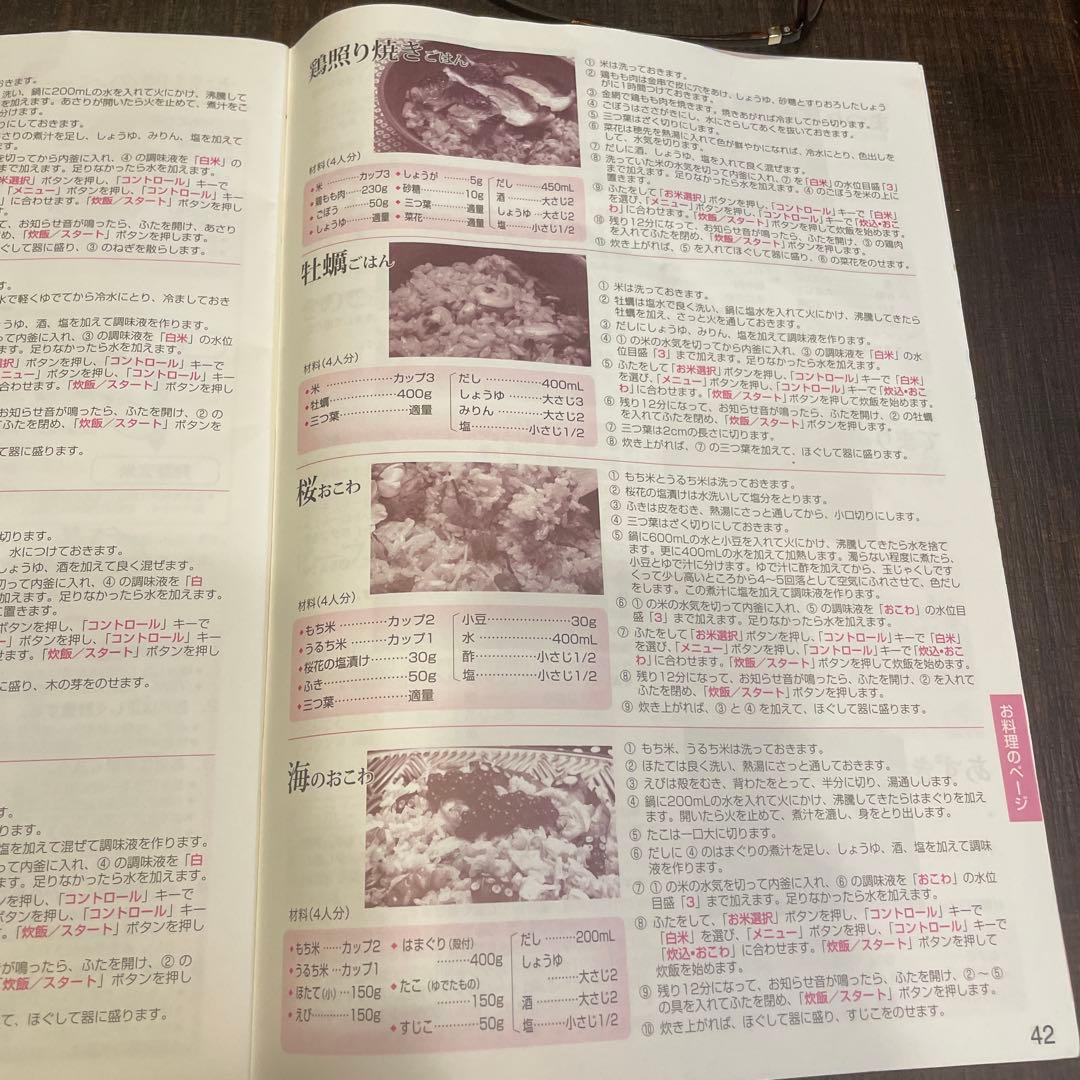 おきます。
洗い、鍋に200mLの水を入れて火にかけ、沸騰して
を加えます。あさりが開いたら火を止めて、煮汁をこ
分けます。
りにしておきます。
さりの煮汁を足し、しょうゆ、みりん、塩を加えて
を切ってから内釜に入れ、④の調味液を「白米」の
まで加えます。足りなかったら水を加えます。
米選択」ボタンを押し、「コントロール」キーで
、「メニュー」ボタンを押し、「コントロール」キー
」に合わせます。「炊飯/スタート」ボタンを押し
て、お知らせ音が鳴ったら、ふたを開け、あさり
め、「炊飯/スタート」ボタンを押します。
ぐして器に盛り、③のねぎを散らします。
す。
水で軽くゆでてから冷水にとり、冷ましておき
うゆ、酒、塩を加えて調味液を作ります。
って内釜に入れ、③の調味液を「白米」の水位
ます。足りなかったら水を加えます。
選択」ボタンを押し、「コントロール」キーで
ボタンを押し、「コントロール」キー
に合わせます。「炊飯/スタート」ボタンを押し
お知らせ音が鳴ったら、ふたを開け、②の
てふたを閉め、「炊飯/スタート」ボタンを
て器に盛ります。
切ります。
水につけておきます。
しょうゆ、酒を加えて良く混ぜます。
切って内釜に入れ、④の調味液を「白
加えます。足りなかったら水を加えます。
に置きます。
ボタンを押し、「コントロール」キーで
ー」ボタンを押し、「コントロール」キー
ます。「炊飯/スタート」ボタンを押し
に盛り、木の芽をのせます。
す。
ります。
塩を加えて混ぜて調味液を作ります。
って内釜に入れ、④の調味液を「白
ます。足りなかったら水を加えます。
ンを押し、「コントロール」キーで
ボタンを押し、「コントロール」キー
す。「炊飯/スタート」ボタンを押し
が鳴ったら、ふたを開け、②の
「炊飯/スタート」ボタンを押し
て、ほぐして器に盛ります。
鶏照り焼きごはん
材料(4人分)
米 カップ3
鶏もも肉 230g
ごぼう 50g
しょうゆ 適量
しょうが 5g
砂糖 10g
三つ葉 適量
菜花 適量
だし 450mL
酒 大さじ2
しょうゆ 大さじ2
塩 小さじ1/2
① 米は洗っておきます。
② 鶏もも肉は金串で皮に穴をあけ、しょうゆ、砂糖とすりおろしたしょう
がに1時間つけておきます。
③ 金網で鶏もも肉を焼きます。焼きあがれば冷ましてから切ります。
④ ごぼうはささがきにし、水にさらしてあくを抜いておきます。
⑤ 三つ葉はざく切りにします。
⑥ 菜花は穂先を熱湯に入れて色が鮮やかになれば、冷水にとり、色出しを
して、水気を切ります。
⑦ だしに酒、しょうゆ、塩を入れて良く混ぜます。
⑧ 洗っていた米の水気を切って内釜に入れ、⑦を「白米」の水位目盛「3」
まで加えます。足りなかったら水を加えます。④のごぼうを米の上に
置きます。
⑨ ふたをして「お米選択」ボタンを押し、「コントロール」キーで「白米」
を選び、「メニュー」ボタンを押し、「コントロール」キーで「炊込・おこ
わ」に合わせます。「炊飯/スタート」ボタンを押して炊飯を始めます。
⑩ 残り12分になって、お知らせ音が鳴ったら、ふたを開け、③の鶏肉
を入れてふたを閉め、「炊飯/スタート」ボタンを押します。
⑪ 炊き上がれば、⑤を入れてほぐして器に盛り、⑥の菜花をのせます。
牡蠣ごはん
材料(4人分)
米 カップ3
牡蠣 400g
三つ葉 適量
だし 400mL
しょうゆ 大さじ3
みりん 大さじ2
塩 小さじ1/2
① 米は洗っておきます。
② 牡蠣は塩水で良く洗い、鍋に塩水を入れて火にかけ、沸騰してきたら
牡蠣を加え、さっと火を通しておきます。
③ だしにしょうゆ、みりん、塩を加えて調味液を作ります。
④ ①の米の水気を切ってから内釜に入れ、③の調味液を「白米」の水
位目盛「3」まで加えます。足りなかったら水を加えます。
⑤ ふたをして「お米選択」ボタンを押し、「コントロール」キーで「白米」
を選び、「メニュー」ボタンを押し、「コントロール」キーで「炊込・おこ
わ」に合わせます。「炊飯/スタート」ボタンを押して炊飯を始めます。
⑥ 残り12分になって、お知らせ音が鳴ったら、ふたを開け、②の牡蠣
を入れてふたを閉め、「炊飯/スタート」ボタンを押します。
⑦ 三つ葉は2cmの長さに切ります。
⑧ 炊き上がれば、⑦の三つ葉を加えて、ほぐして器に盛ります。
桜おこわ
材料(4人分)
もち米 カップ2
うるち米 カップ1
桜花の塩漬け 30g
ふき 50g
三つ葉 適量
小豆 30g
水 400mL
酢 小さじ1/2
塩 小さじ1/2
① もち米とうるち米は洗っておきます。
② 桜花の塩漬けは水洗いして塩分をとります。
③ ふきは皮をむき、熱湯にさっと通してから、小口切りにします。
④ 三つ葉はざく切りにしておきます。
⑤ 鍋に600mLの水と小豆を入れて火にかけ、沸騰してきたら水を捨て
ます。更に400mLの水を加えて加熱します。濁らない程度に煮たら、
小豆とゆで汁に分けます。ゆで汁に酢を加えてから、玉じゃくしです
くって少し高いところから4〜5回落として空気にふれさせて、色だし
をします。この煮汁に塩を加えて調味液を作ります。
⑥ ①の米の水気を切って内釜に入れ、⑤の調味液を「おこわ」の水位目
盛「3」まで加えます。足りなかったら水を加えます。
⑦ ふたをして「お米選択」ボタンを押し、「コントロール」キーで「白米」
を選び、「メニュー」ボタンを押し、「コントロール」キーで「炊込・おこ
わ」に合わせます。「炊飯/スタート」ボタンを押して炊飯を始めます。
⑧ 残り12分になって、お知らせ音が鳴ったら、ふたを開け、②を入れて
ふたを閉め、「炊飯/スタート」ボタンを押します。
⑨ 炊き上がれば、③と④を加えて、ほぐして器に盛ります。
海のおこわ
材料(4人分)
もち米 カップ2
うるち米 カップ1
ほたて(小) 150g
えび 150g
はまぐり(殻付)
400g
たこ(ゆでたもの)
150g
すじこ 50g
だし 200mL
しょうゆ
大さじ2
酒 大さじ2
塩 小さじ1/2
① もち米、うるち米は洗っておきます。
② ほたては良く洗い、熱湯にさっと通しておきます。
③ えびは殻をむき、背わたをとって、半分に切り、湯通しします。
④ 鍋に200mLの水を入れて火にかけ、沸騰してきたらはまぐりを加え
ます。開いたら火を止めて、煮汁を漉し、身をとり出します。
⑤ たこは一口大に切ります。
⑥ だしに④のはまぐりの煮汁を足し、しょうゆ、酒、塩を加えて調味
液を作ります。
⑦ ①の米の水気を切って内釜に入れ、⑥の調味液を「おこわ」の水位
目盛「3」まで加えます。足りなかったら水を加えます。
⑧ ふたをして、「お米選択」ボタンを押し、「コントロール」キーで
「白米」を選び、「メニュー」ボタンを押し、「コントロール」キーで
「炊込・おこわ」に合わせます。「炊飯/スタート」ボタンを押して
炊飯を始めます。
⑨ 残り12分になって、お知らせ音が鳴ったら、ふたを開け、②〜⑤
の具を入れてふたを閉め、「炊飯/スタート」ボタンを押します。
⑩ 炊き上がれば、ほぐして器に盛り、すじこをのせます。
お料理のページ
42